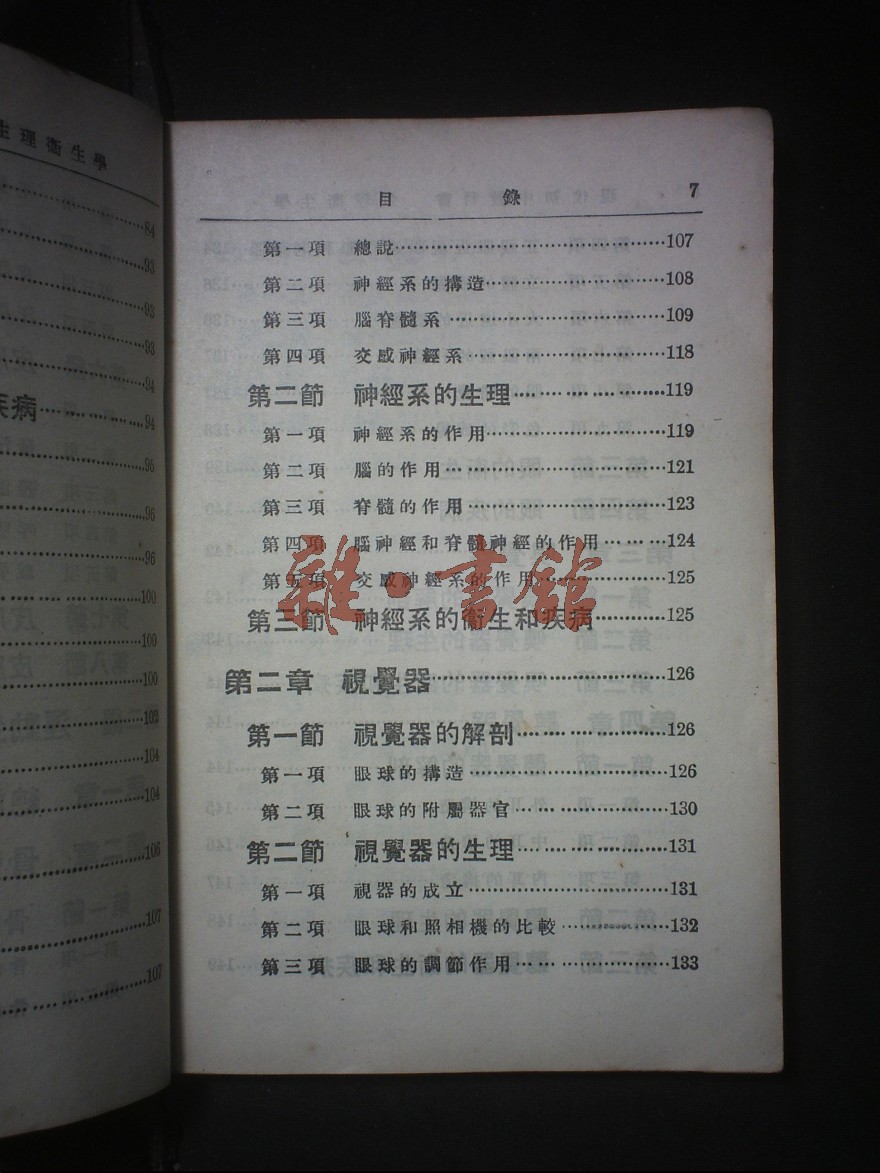 生理衞生學
84
93
93
93
94
疾病 94
96
96
96
100
100
100
102
104
104
106
107
107
目錄 7
第一項 總說 107
第二項 神經系的構造 108
第三項 腦脊髓系 109
第四項 交感神經系 118
第二節 神經系的生理 119
第一項 神經系的作用 119
第二項 腦的作用 121
第三項 脊髓的作用 123
第四項 腦神經和脊髓神經的作用 124
第五項 交感神經系的作用 125
第三節 神經系的衞生和疾病 125
第二章 視覺器 126
第一節 視覺器的解剖 126
第一項 眼球的構造 126
第二項 眼球的附屬器官 130
第二節 視覺器的生理 131
第一項 視器的成立 131
第二項 眼球和照相機的比較 132
第三項 眼球的調節作用 133
雜·書館